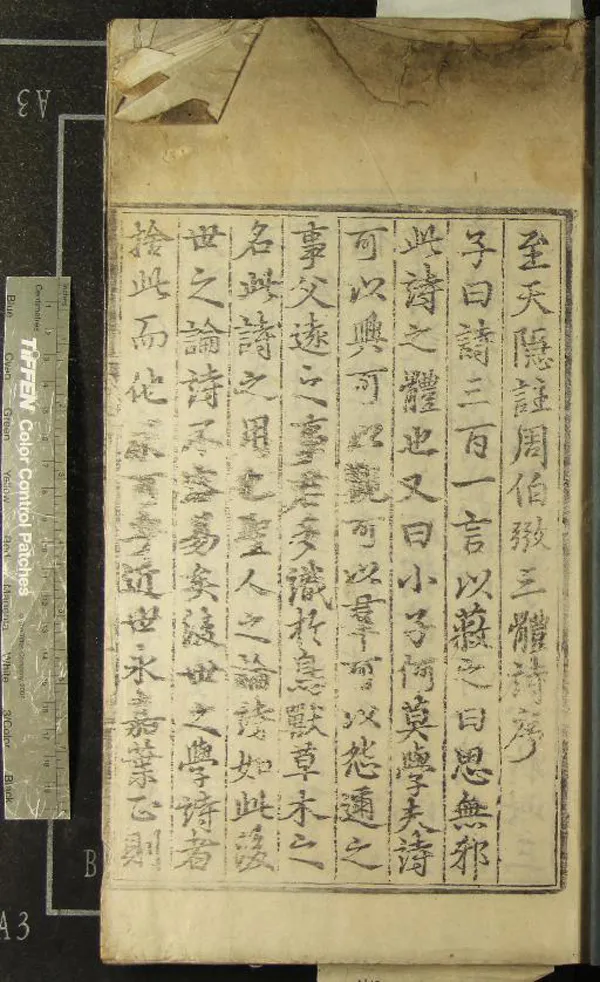 至天隱註周伯弜三體詩序
子曰詩三百一言以蔽之曰思無邪
此詩之體也又曰小子何莫學夫詩
可以興可以觀可以羣可以怨邇之
事父遠之事君多識於鳥獸草木之
名此詩之用也聖人之論詩如此後
世之論詩不容易矣後世之學詩者
捨此而他求可乎近世永嘉葉正則
A3
A3
B
inches
Centimetres
TIFFEN Color Control Patches
Blue
Cyan
Green
Yellow
Red
Magenta
White
3/Color
Black